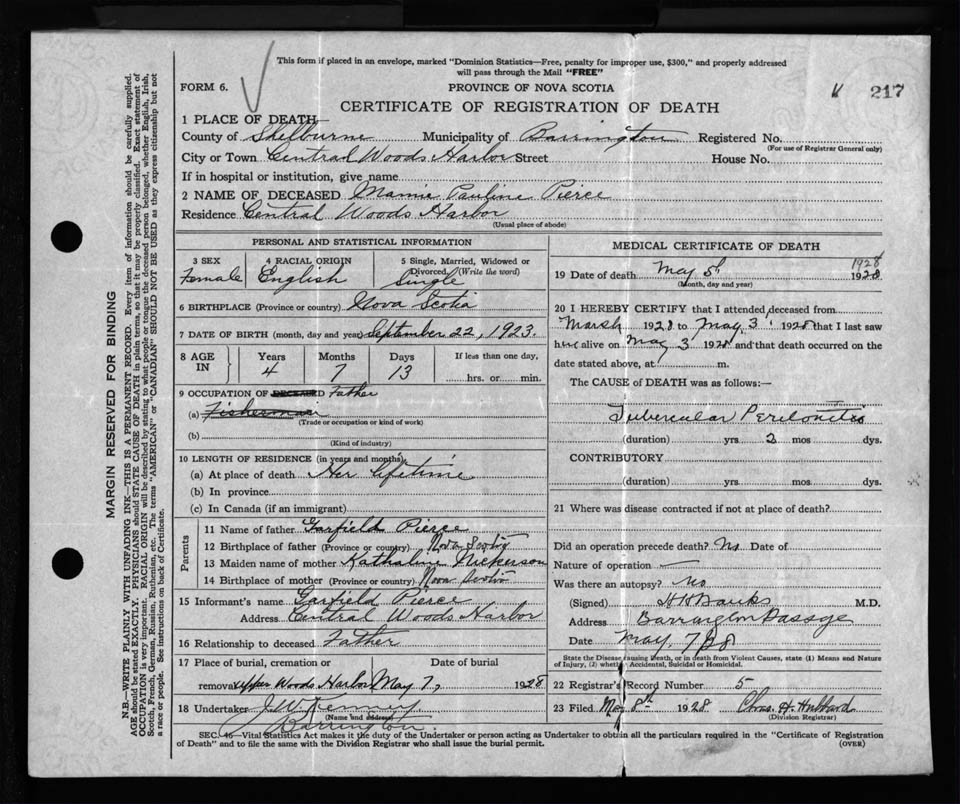 This form if placed in an envelope, marked "Dominion Statistics—Free, penalty for improper use, $300," and properly addressed
will pass through the Mail "FREE"
FORM 6.
PROVINCE OF NOVA SCOTIA
217
CERTIFICATE OF REGISTRATION OF DEATH
1 PLACE OF DEATH—
County of Shelburne Municipality of Barrington Registered No.
(For use of Registrar General only)
City or Town Central Woods Harbor Street House No.
If in hospital or institution, give name
2 NAME OF DECEASED Mamie Pauline Pierce
Residence Central Woods Harbor
(Usual place of abode)
PERSONAL AND STATISTICAL INFORMATION
3 SEX 4 RACIAL ORIGIN 5 Single, Married, Widowed or
Divorced, (Write the word)
Female English Single
6 BIRTHPLACE (Province or country) Nova Scotia
7 DATE OF BIRTH (month, day and year) September 22, 1923.
8 AGE IN Years Months Days If less than one day,
4 7 13 hrs. or min.
9 OCCUPATION OF DECEASED Father
(a) Fisherman
(Trade or occupation or kind of work)
(b)
(Kind of industry)
10 LENGTH OF RESIDENCE (in years and months)
(a) At place of death Her lifetime
(b) In province
(c) In Canada (if an immigrant)
Parents
11 Name of father Garfield Pierce
12 Birthplace of father (Province or country) Nova Scotia
13 Maiden name of mother Kathaline Nickerson
14 Birthplace of mother (Province or country) Nova Scotia
15 Informant's name Garfield Pierce
Address Central Woods Harbor
16 Relationship to deceased Father
17 Place of burial, cremation or Date of burial
removal Upper Woods Harbor May 7, 1928
18 Undertaker J W Kenney
(Name and address)
Barrington
MEDICAL CERTIFICATE OF DEATH
1928
19 Date of death May 5th 1928
(Month, day and year)
20 I HEREBY CERTIFY that I attended deceased from
March 1928 to May 3 1928 that I last saw
her alive on May 3 1928 and that death occurred on the
date stated above, at m.
The CAUSE of DEATH was as follows:—
Tubercular Peritonitis
(duration) yrs. 2 mos. dys.
CONTRIBUTORY
(duration) yrs. mos. dys.
21 Where was disease contracted if not at place of death?
Did an operation precede death? No Date of
Nature of operation —
Was there an autopsy? No
(Signed) Banks M.D.
Address Barrington Passage
Date May, 7/28
State the Disease causing Death, or in death from Violent Causes, state (1) Means and Nature
of Injury, (2) whether Accidental, Suicidal or Homicidal.
22 Registrar's Record Number 5
23 Filed May 8th 1928 Chas. H. Hubbard
(Division Registrar)
SEC. 46—Vital Statistics Act makes it the duty of the Undertaker or person acting as Undertaker to obtain all the particulars required in the "Certificate of Registration
of Death" and to file the same with the Division Registrar who shall issue the burial permit.
(OVER)
MARGIN RESERVED FOR BINDING
N.B.—WRITE PLAINLY WITH UNFADING INK—THIS IS A PERMANENT RECORD. Every item of information should be carefully supplied.
AGE should be stated EXACTLY. PHYSICIANS should STATE CAUSE OF DEATH in plain terms, so that it may be properly classified. Exact statement of
OCCUPATION is very important. RACIAL ORIGIN will be described by stating to what people or tongue the deceased person belonged, whether English, Irish,
Scotch, French, German, Russian, Ruthenian, etc. The terms "AMERICAN" or "CANADIAN" SHOULD NOT BE USED as they express citizenship but not
a race or people. See instructions on back of Certificate.